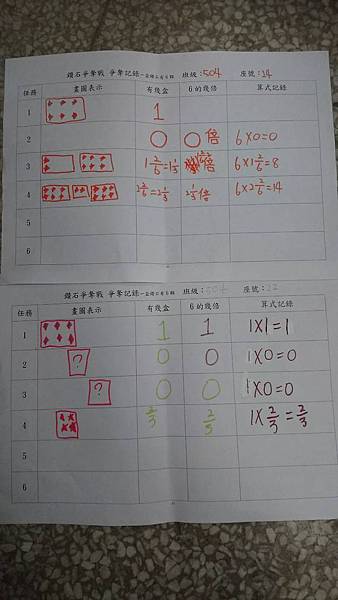 鑽石爭奪戰 爭奪記錄 一盒鑽石有6顆 班級：504 座號：14
任務 畫圖表示 有幾盒 6的幾倍 算式記錄
1 1
2 0 0倍 6×0=0
3 1 2/6=1 1/3 倍 6×1 2/6=8
4 2 2/6=2 1/3 2 1/3倍 6×2 2/6=14
5
6
鑽石爭奪戰 爭奪記錄 一盒鑽石有6顆 班級： 座號：
任務 畫圖表示 有幾盒 6的幾倍 算式記錄
1 1 1 1×1=1
2 ? 0 0 1×0=0
3 ? 0 0 1×0=0
4 2/3 2/3 1×2/3=2/3
5
6